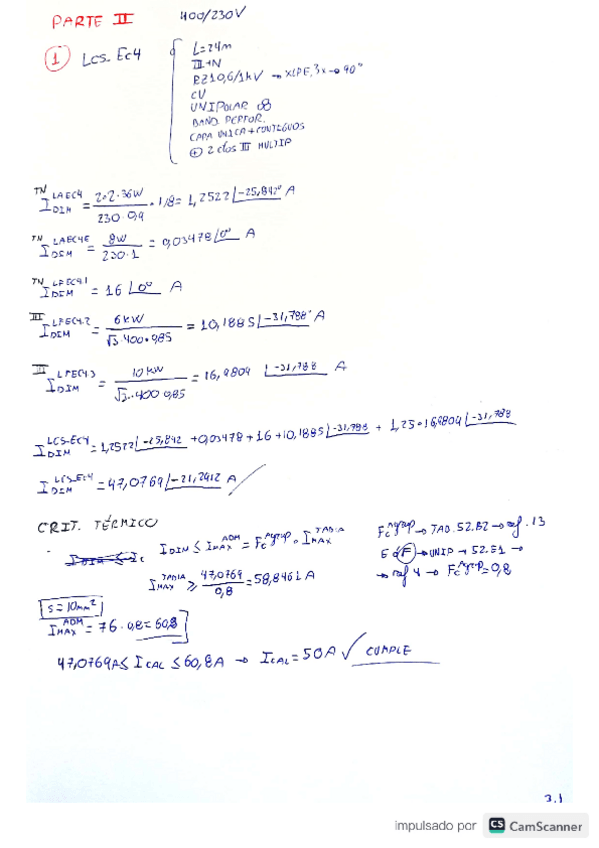 PARTE II 400/230V
① LCS. EC4
L=24m
III+N
RZ1 0,6/1kV → XLPE, 3x → 90°
CU
UNIPOLAR
BAND. PERFOR.
CAPA UNICA + CONTIGUOS
⊕ 2 ctos III MULTIP
TN I DIM LAEC4 = 2·2·36W / 230·0,9 · 1,8 = 1,2522 |-25,842° A
TN I DIM LAEC4E = 8W / 230·1 = 0,03478 |0° A
TN I DIM LFEC4.1 = 16 |0° A
III I DIM LFEC4.2 = 6kW / √3·400·0,85 = 10,1885 |-31,788° A
III I DIM LFEC4.3 = 10kW / √3·400·0,85 = 16,9804 |-31,788 A
I DIM LCS-EC4 = 1,2522 |-25,842 + 0,03478 + 16 + 10,1885 |-31,788 + 1,25·16,9804 |-31,788
I DIM LCS-EC4 = 47,0769 |-21,2912 A
CRIT. TÉRMICO
I DIM ≤ I MAX ADM = Fc Agrup · I MAX TABLA
Fc Agrup → TAB. 52.B2 → ref. 13
E ó F → UNIP → 52.E1 →
→ ref 4 → Fc Agrup = 0,8
I MAX TABLA ≥ 47,0769 / 0,8 = 58,8461 A
S = 10mm²
I MAX ADM = 76 · 0,8 = 60,8
47,0769A ≤ I CAL ≤ 60,8A → I CAL = 50A ✓ CUMPLE
2.1
impulsado por CS CamScanner